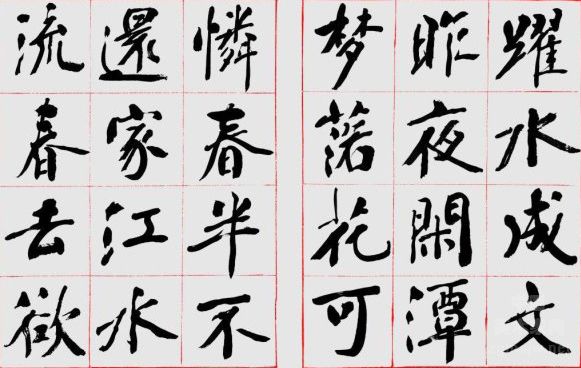 躍水成文
昨夜閑潭
梦落花可
憐春半不
還家江水
流春去欲